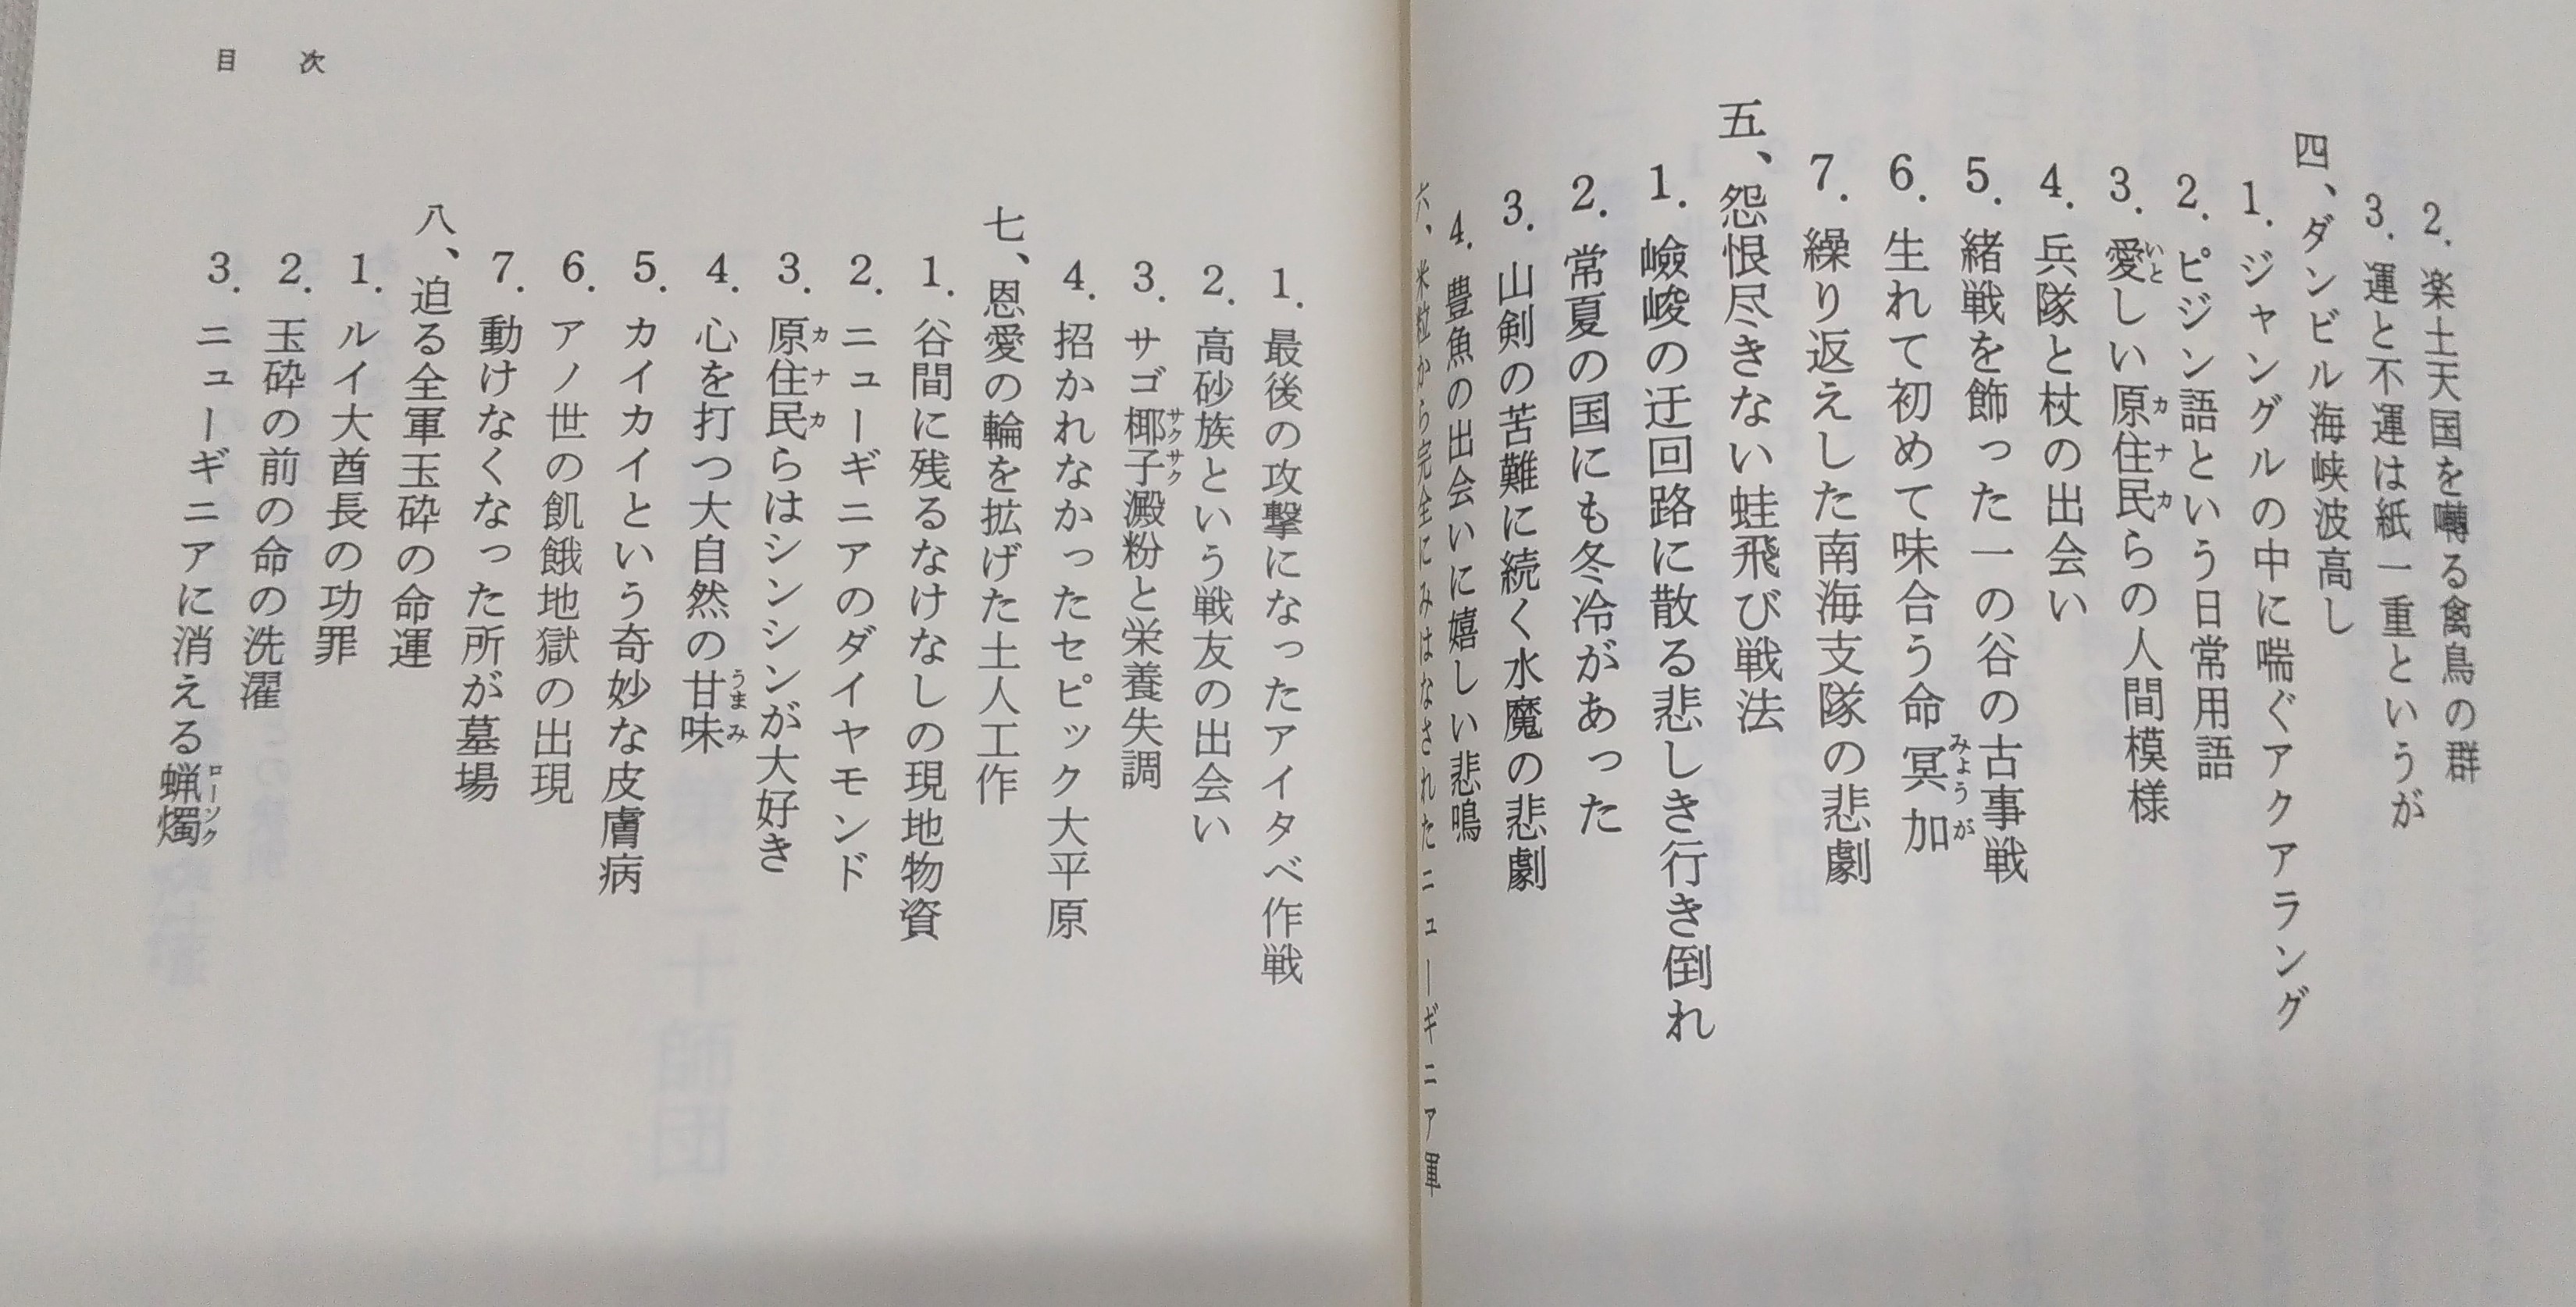 2. 楽土天国を囀る禽鳥の群
3. 運と不運は紙一重というが
四、ダンビル海峡波高し
1. ジャングルの中に喘ぐアクアラング
2. ピジン語という日常用語
3. 愛しい原住民らの人間模様
いと
カナカ
4. 兵隊と杖の出会い
5. 緒戦を飾った一の谷の古事戦
6. 生れて初めて味合う命冥加
みょうが
7. 繰り返えした南海支隊の悲劇
五、怨恨尽きない蛙飛び戦法
1. 嶮峻の迂回路に散る悲しき行き倒れ
2. 常夏の国にも冬冷があった
3. 山剣の苦難に続く水魔の悲劇
4. 豊魚の出会いに嬉しい悲鳴
六、米粒から完全にみはなされたニューギニア軍
目次
1. 最後の攻撃になったアイタベ作戦
2. 高砂族という戦友の出会い
3. サゴ椰子澱粉と栄養失調
サクサク
4. 招かれなかったセピック大平原
七、恩愛の輪を拡げた土人工作
1. 谷間に残るなけなしの現地物資
2. ニューギニアのダイヤモンド
3. 原住民らはシンシンが大好き
カナカ
4. 心を打つ大自然の甘味
うまみ
5. カイカイという奇妙な皮膚病
6. アノ世の飢餓地獄の出現
7. 動けなくなった所が墓場
八、迫る全軍玉砕の命運
1. ルイ大酋長の功罪
2. 玉砕の前の命の洗濯
3. ニューギニアに消える蝋燭
ローソク